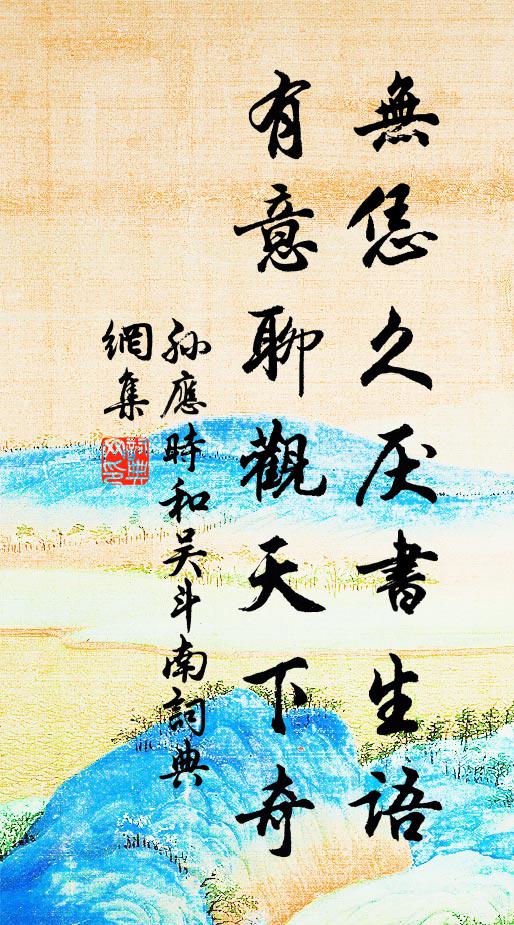 無恁久厌書生語
有意聊觀天下奇
孫應時和吴斗南詞典
網集